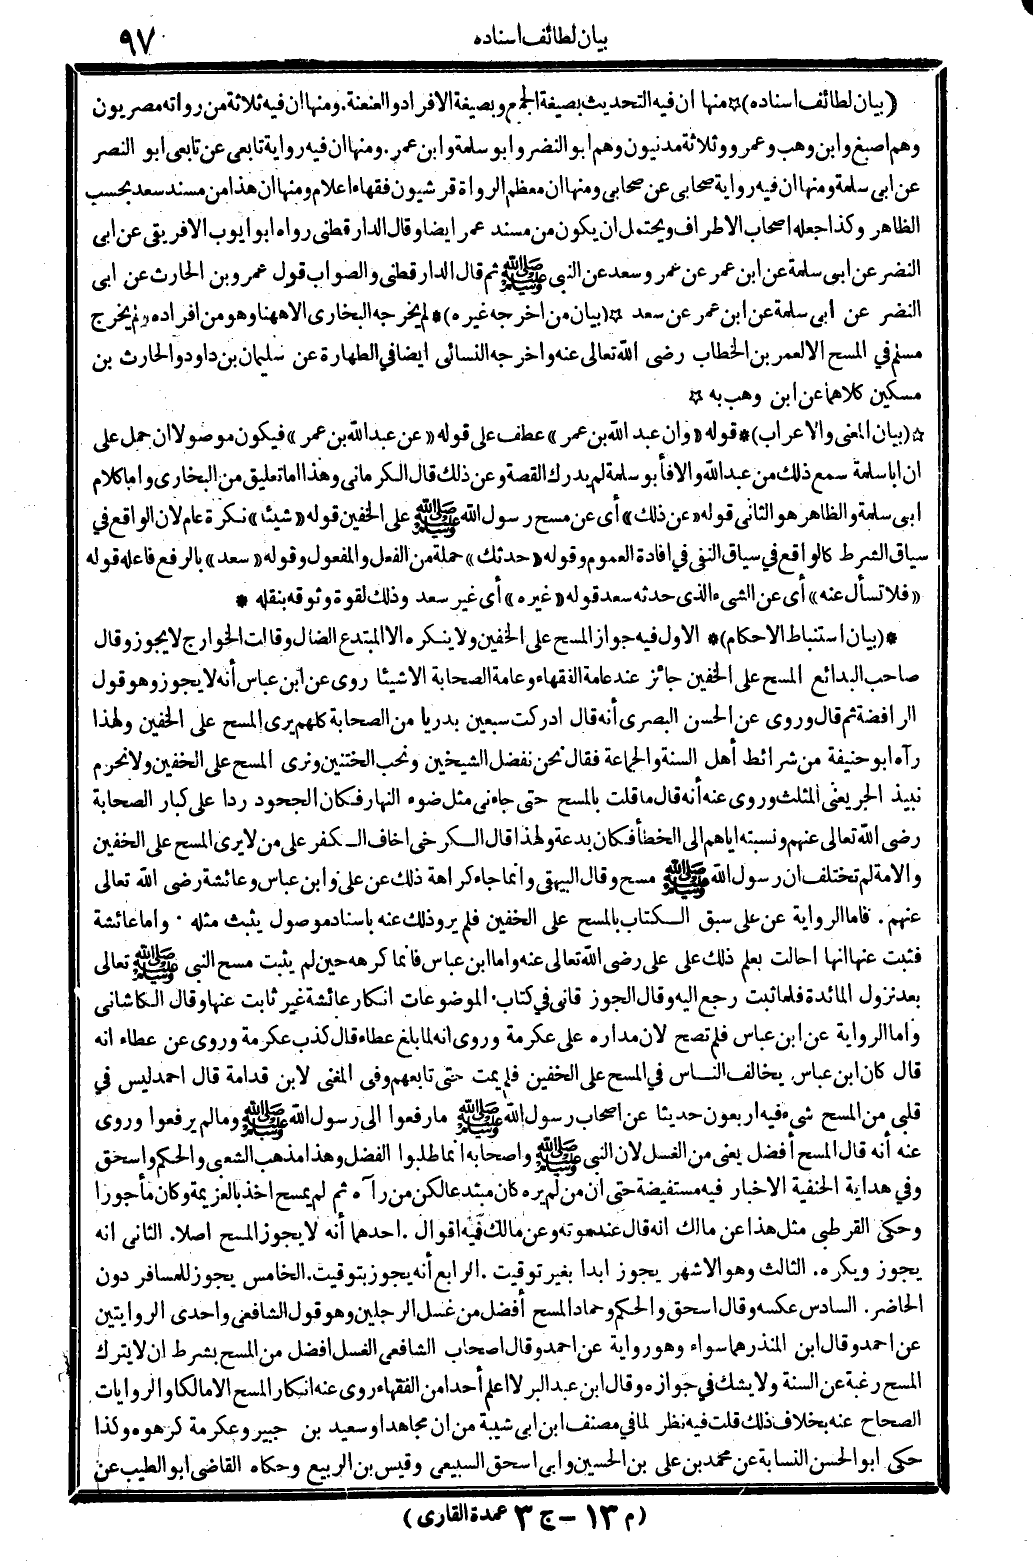 بيان لطائف اسناده
٩٧
(بيان لطائف اسناده)☆منها ان فيه التحديث بصيغة الجمع وبصيغة الافرادو العنعنة.ومنهاان فيه ثلاثة من رواته مصريون
وهم اصبغ وابن وهب وعمرو وثلاثة مدنيون وهم ابو النضر وابو سلمة وابن عمر.ومنهاان فيه رواية تابعى عن تابعى ابو النصر
عن ابى سلمة ومنها ان فيه رواية صحابى عن صحابى ومنها ان معظم الرواة قرشيون فقهاء اعلام ومنها ان هذا من مسند سعد بحسب
الظاهر وكذا جعله اصحاب الاطراف ويحتمل ان يكون من مسند عمر ايضا وقال الدارقطنى رواه ابو ايوب الافريقى عن ابى
النضر عن ابى سلمة عن ابن عمر عن عمر وسعد عن النبى ﷺ ثم قال الدار قطنى والصواب قول عمرو بن الحارث عن ابى
النضر عن ابى سلمة عن ابن عمر عن سعد ☆(بيان من اخرجه غيره)*لم يخرجه البخارى الا ههنا وهو من افراده ولم يخرج
مسلم في المسح الا لعمر بن الخطاب رضى الله تعالى عنه واخرجه النسائى ايضا في الطهارة عن سليمان بن داود والحارث بن
مسكين كلاهما عن ابن وهب به ☆
☆(بيان المعنى والاعراب)*قوله «وان عبد الله بن عمر» عطف على قوله «عن عبد الله بن عمر» فيكون موصولا ان حمل على
ان ابا سلمة سمع ذلك من عبد الله والا فأبو سلمة لم يدرك القصة وعن ذلك قال الكرمانى وهذا اما تعليق من البخارى واما كلام
ابى سلمة والظاهر هو الثانى قوله «عن ذلك» أى عن مسح رسول الله ﷺ على الخفين قوله «شيئا» نكرة عام لان الواقع في
سياق الشرط كالواقع في سياق النفى في افادة العموم وقوله «حدثك» جملة من الفعل والمفعول وقوله «سعد» بالرفع فاعله قوله
«فلا تسأل عنه» أى عن الشىء الذى حدثه سعد قوله «غيره» أى غير سعد وذلك لقوة وثوقه بنقله *
*(بيان استنباط الاحكام)* الاول فيه جواز المسح على الخفين ولا ينكره الا المبتدع الضال وقالت الخوارج لا يجوز وقال
صاحب البدائع المسح على الخفين جائز عند عامة الفقهاء وعامة الصحابة الا شيئا روى عن ابن عباس أنه لا يجوز وهو قول
الرافضة ثم قال وروى عن الحسن البصرى أنه قال ادركت سبعين بدريا من الصحابة كلهم يرى المسح على الخفين ولهذا
رآه ابو حنيفة من شرائط أهل السنة والجماعة فقال نحن نفضل الشيخين ونحب الختنين ونرى المسح على الخفين ولا نحرم
نبيذ الجر يعنى المثلث وروى عنه أنه قال ما قلت بالمسح حتى جاءنى مثل ضوء النهار فكان الجحود ردا على كبار الصحابة
رضى الله تعالى عنهم ونسبته اياهم الى الخطأ فكان بدعة ولهذا قال الكرخى اخاف الكفر على من لا يرى المسح على الخفين
والامة لم تختلف ان رسول الله ﷺ مسح وقال البيهقى وانما جاء كراهة ذلك عن على وابن عباس وعائشة رضى الله تعالى
عنهم. فاما الرواية عن على سبق الكتاب بالمسح على الخفين فلم يرو ذلك عنه باسناد موصول يثبت مثله . واما عائشة
فثبت عنها انها احالت بعلم ذلك على على رضى الله تعالى عنه واما ابن عباس فانما كرهه حين لم يثبت مسح النبى ﷺ تعالى
بعد نزول المائدة فلما ثبت رجع اليه وقال الجوز قانى في كتاب الموضوعات انكار عائشة غير ثابت عنها وقال الكاشانى
واما الرواية عن ابن عباس فلم تصح لان مداره على عكرمة وروى انه لما بلغ عطاء قال كذب عكرمة وروى عن عطاء انه
قال كان ابن عباس يخالف الناس في المسح على الخفين فلم يمت حتى تابعهم وفى المغنى لابن قدامة قال احمد ليس في
قلبى من المسح شىء فيه اربعون حديثا عن اصحاب رسول الله ﷺ ما رفعوا الى رسول الله ﷺ وما لم يرفعوا وروى
عنه أنه قال المسح أفضل يعنى من الغسل لان النبى ﷺ واصحابه انما طلبوا الفضل وهذا مذهب الشعبى والحكم واسحق
وفى هداية الحنفية الاخبار فيه مستفيضة حتى ان من لم يره كان مبتدعا لكن من رآه ثم لم يمسح اخذ بالعزيمة وكان مأجورا
وحكى القرطبى مثل هذا عن مالك انه قال عند موته وعن مالك فيه اقوال .احدها أنه لا يجوز المسح اصلا. الثانى انه
يجوز ويكره. الثالث وهو الاشهر يجوز ابدا بغير توقيت .الرابع أنه يجوز بتوقيت.الخامس يجوز للمسافر دون
الحاضر. السادس عكسه وقال اسحق والحكم وحماد المسح أفضل من غسل الرجلين وهو قول الشافعى واحدى الروايتين
عن احمد وقال ابن المنذر هما سواء وهو رواية عن احمد وقال اصحاب الشافعى الغسل افضل من المسح بشرط ان لا يترك
المسح رغبة عن السنة ولا يشك في جوازه وقال ابن عبد البر لا اعلم أحدا من الفقهاء روى عنه انكار المسح الا مالكا والروايات
الصحاح عنه بخلاف ذلك قلت فيه نظر لما في مصنف ابن ابى شيبة من ان مجاهدا وسعيد بن جبير وعكرمة كرهوه وكذا
حكى ابو الحسن النسابة عن محمد بن على بن الحسين وابى اسحق السبيعى وقيس بن الربيع وحكاه القاضى ابو الطيب عن
(م ١٣ - ج ٣ عمدة القارى)